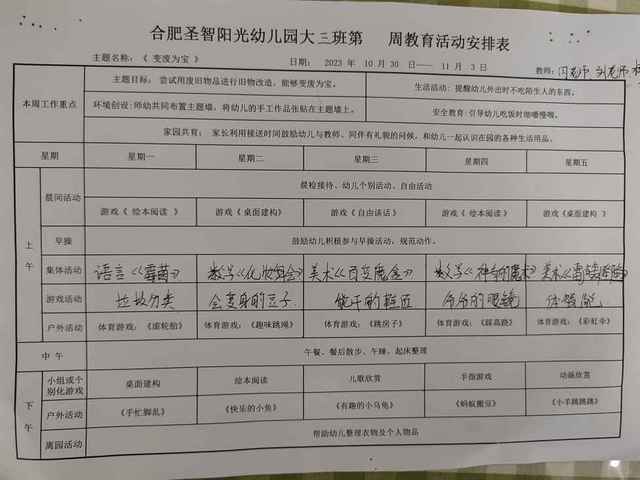 合肥圣智阳光幼儿园大三班第 周教育活动安排表
主题名称:《 变废为宝 》 日期: 2023 年 10 月 30 日—— 11 月 3 日 教师:
本周工作重点 主题目标: 尝试用废旧物品进行旧物改造,能够变废为宝。 生活活动: 提醒幼儿外出时不吃陌生人的东西。
环境创设:师幼共同布置主题墙,将幼儿的手工作品张贴在主题墙上。 安全教育:引导幼儿吃饭时细嚼慢咽。
家园共育: 家长利用接送时间鼓励幼儿与教师、同伴有礼貌的问候,和幼儿一起认识在园的各种生活用品。
星期 星期一 星期二 星期三 星期四 星期五
上午 晨间活动 晨检接待、幼儿个别活动、自由活动
游戏《 绘本阅读 》 游戏《 桌面建构》 游戏《 自由谈话》 游戏《 绘本阅读》 游戏《桌面建构 》
早操 鼓励幼儿积极参与早操活动,规范动作。
集体活动 语言《霉菌》 数学《化妆舞会》 美术《百变魔盒》 数学《神奇的魔术》 美术
游戏活动 垃圾分类 会变身的豆子 能干的鞋匠 爷爷的眼镜
户外活动 体育游戏:《滚轮胎》 体育游戏:《趣味跳绳》 体育游戏:《跳房子》 体育游戏:《踩高跷》 体育游戏:《彩虹伞》
中 午 午餐、餐后散步、午睡,起床整理
下午 小组或个别化游戏 桌面建构 绘本阅读 儿歌欣赏 手指游戏 动画欣赏
户外活动 《手忙脚乱》 《快乐的小鱼》 《有趣的小乌龟》 《蚂蚁搬豆》 《小羊跳跳跳》
离园活动 帮助幼儿整理衣物及个人物品